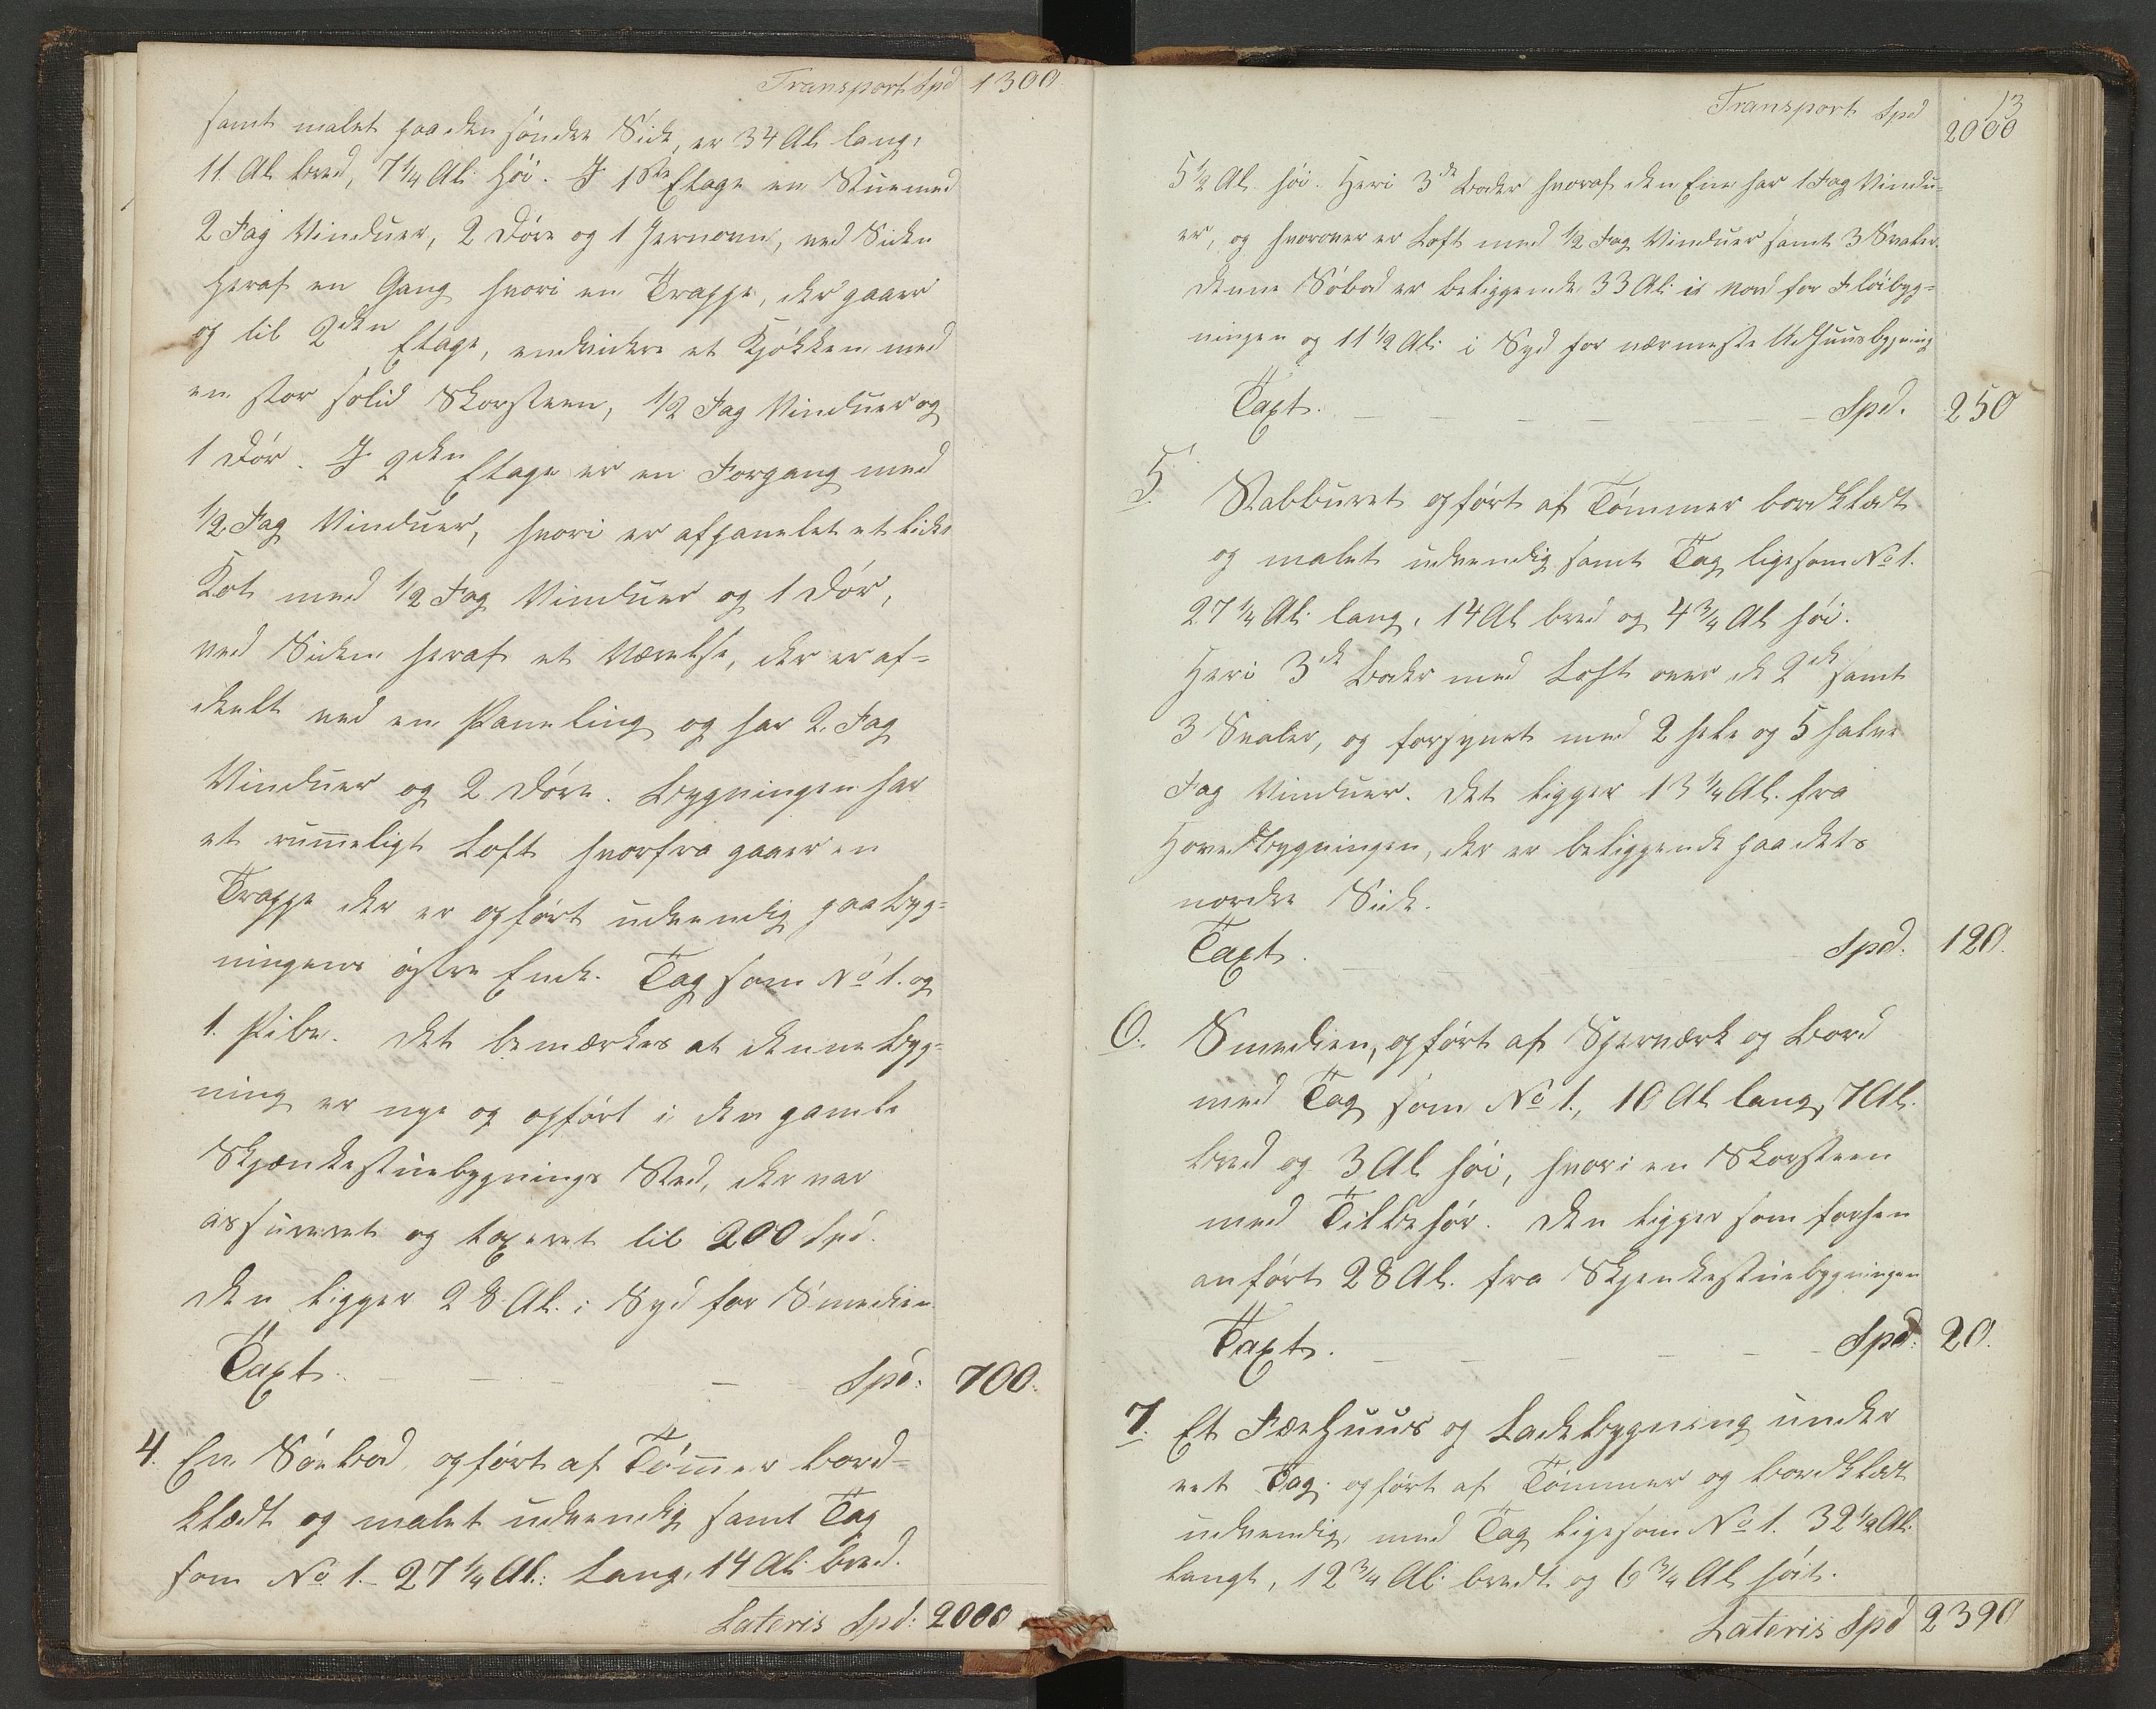 Transport Spd 1300
samt malet paa den söndre Side, er 34 Al. lang,
11 Al. bred, 7 1/4 Al. höi. I 1ste Etage en Stue med
2 Fag Vinduer, 2 Döre og 1 Jernovn, ved Siden
heraf en Gang hvori en Trappe, der gaaer
op til 2den Etage, endvidere et Kjökken med
en stor solid Skorsteen, 1/2 Fag Vinduer og
1 Dör. I 2den Etage er en Forgang med
1/2 Fag Vinduer, hvori er afpanelet et lidet
Kot med 1/2 Fag Vinduer og 1 Dör,
ved Siden heraf et Værelse, der er af-
deelt ved en Paneling og har 2 Fag
Vinduer og 2 Döre. Bygningen har
et rum̄eligt Loft hvorfra gaaer en
Trappe der er opfört udvendig paa Byg-
ningens östre Ende. Tag som No 1. og
1. Pibe. Det bemærkes at denne Byg-
ning er nye og opfört i den gamle
Skjænkestuebygnings Sted, der var
assureret og taxeret til 200 Spd.
Den ligger 28 Al. i Syd for Smedien
Taxt. Spd: 700.
4. En Söebod opfört af Töm̄er bord-
klædt og malet udvendig samt Tag
som No 1. 27 1/4 Al: lang, 14 Al. bred.
Lateris Spd: 2000
13
Transport Spd 2000
5 1/2 Al. höi. Heri 3de Boder hvoraf den Ene har 1 Fag Vindu-
er, og hvorover er Loft med 1/2 Fag Vinduer samt 3 Svaler.
Denne Söbod er beliggende 33 Al: i Nord for Flöibyg-
ningen og 11 1/2 Al: i Syd for nærmeste Udhuusbygning
Taxt. Spd. 250
5. Stabburet opfört af Tömmer bordklædt
og malet udvendig samt Tag ligesom No 1.
27 1/4 Al. lang, 14 Al. bred og 4 3/4 Al. höi.
Heri 3de Boder med Loft over de 2de samt
3 Svaler, og forsynet med 2 hele og 5 halve
Fag Vinduer. Det ligger 13 1/4 Al. fra
Hovedbygningen, der er beliggende paa dets
nordre Side.
Taxt. Spd: 120.
6. Smedien, opfört af Sperværk og Bord
med Tag som No 1., 10 Al. lang, 7 Al.
bred og 3 Al. höi, hvori en Skorsteen
med Tilbehör. Den ligger som forhen
anfört 28 Al. fra Skjenkestuebygningen
Taxt. Spd: 20.
7. Et Fæehuus og Ladebygning under
eet Tag opfört af Tömmer og bordklædt
udvendig, med Tag ligesom No 1. 32 1/2 Al.
langt, 12 3/4 Al: bredt og 6 3/4 Al. höit.
Lateris Spd 2390